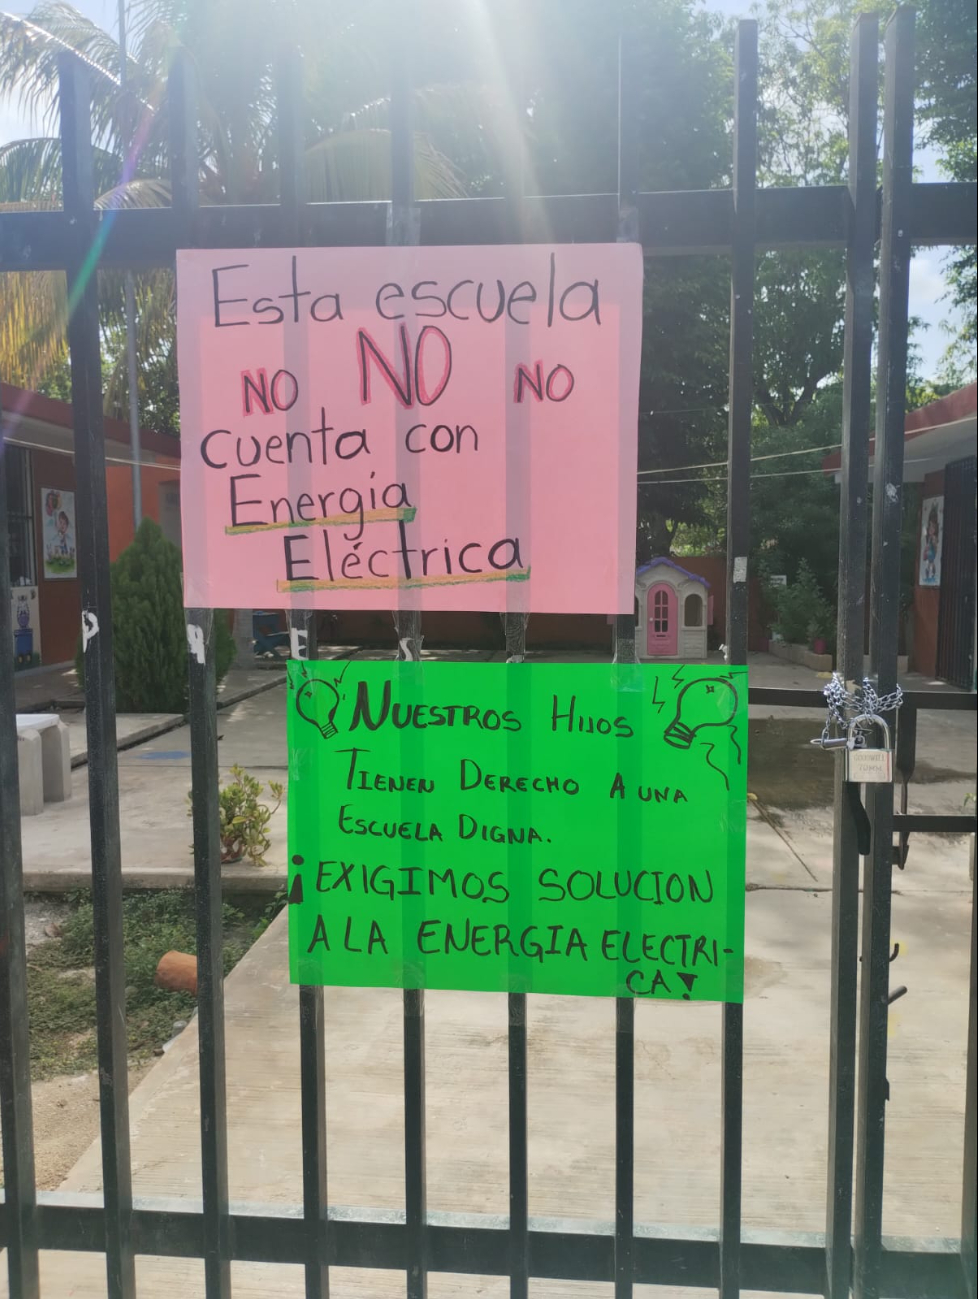 Esta escuela
NO NO NO
cuenta con
Energía
Eléctrica
NUESTROS HIJOS
TIENEN DERECHO A UNA
ESCUELA DIGNA.
¡EXIGIMOS SOLUCION
A LA ENERGIA ELECTRI-
CA!